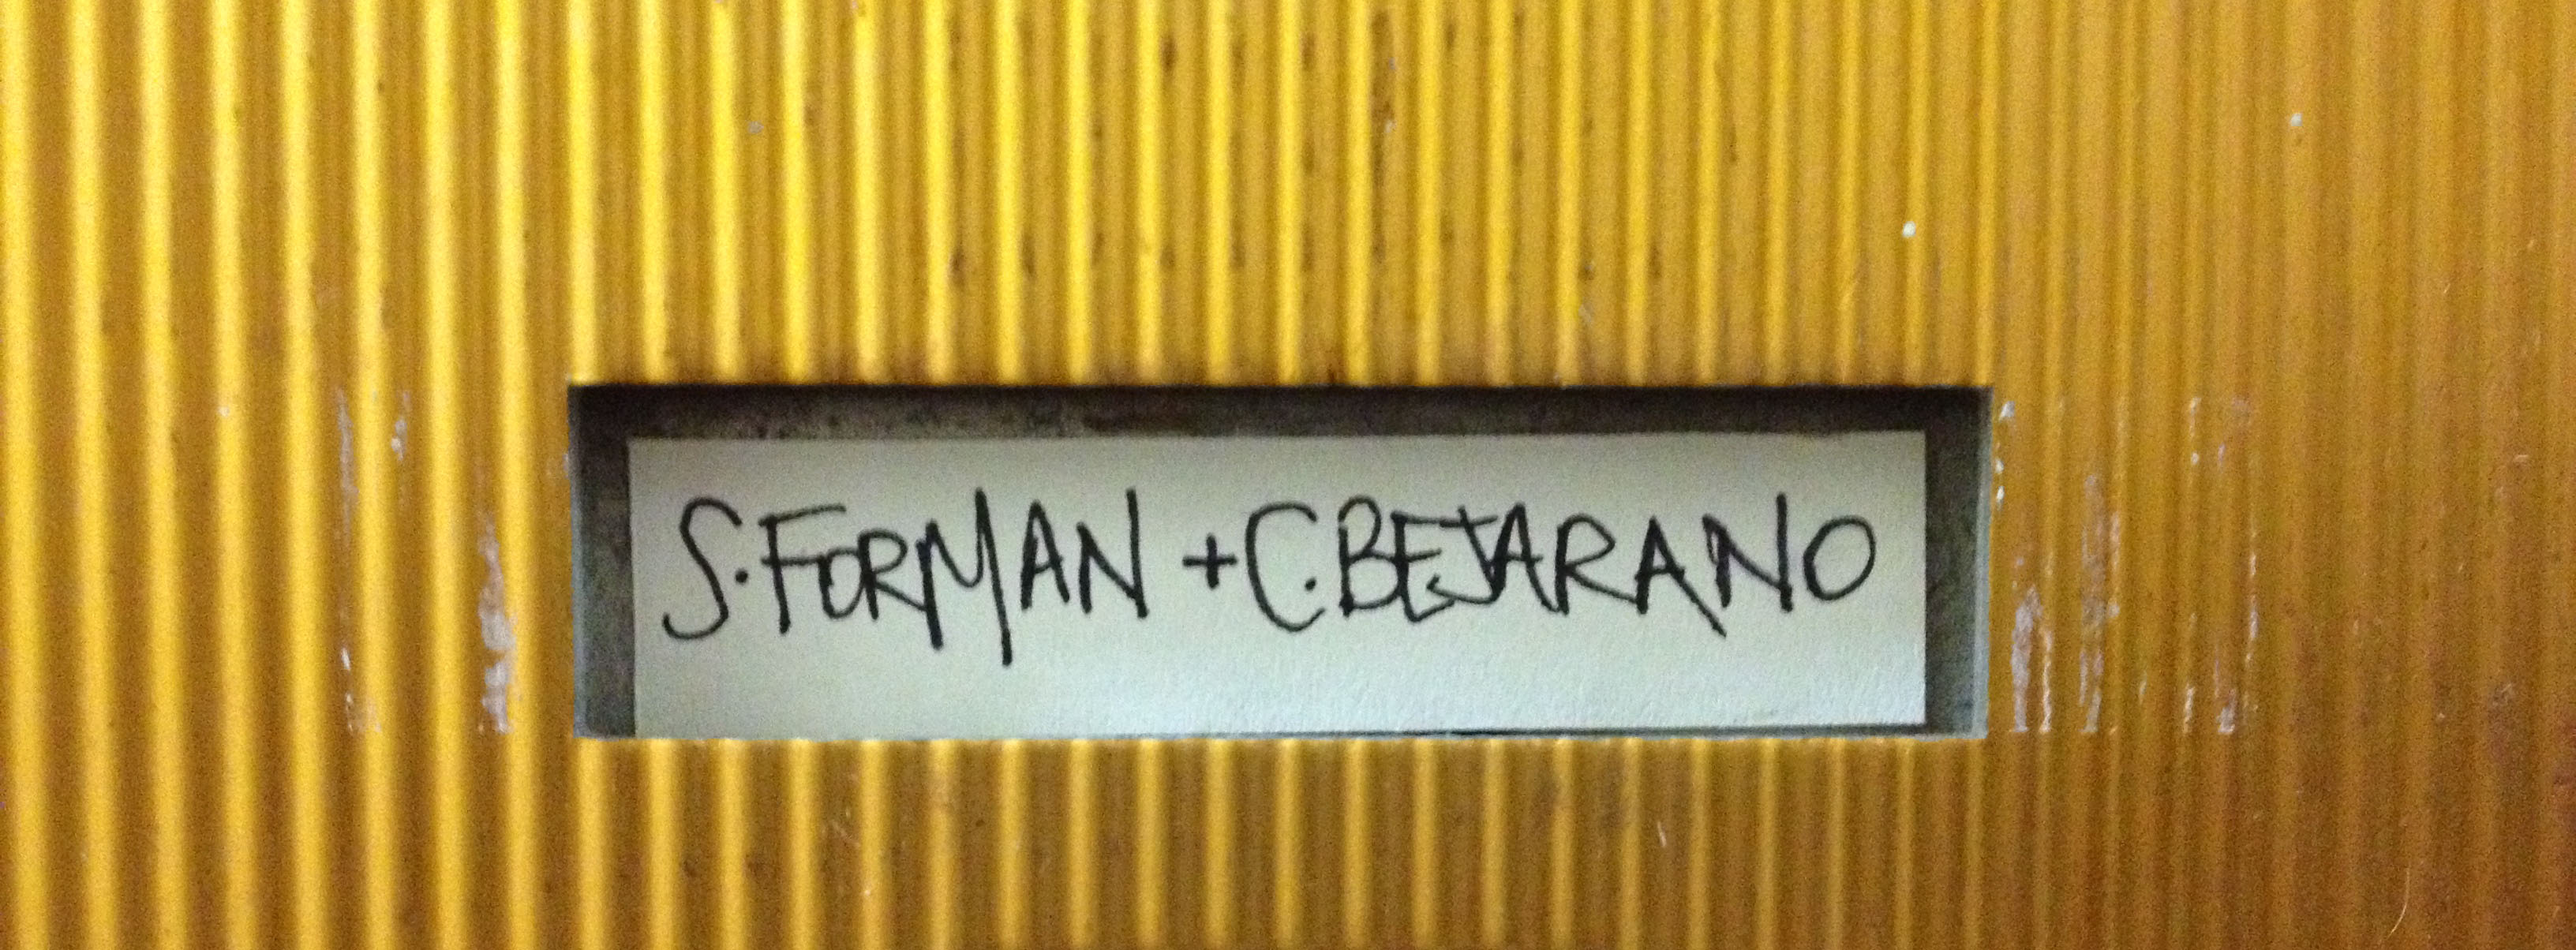 S. FORMAN + C. BEJARANO